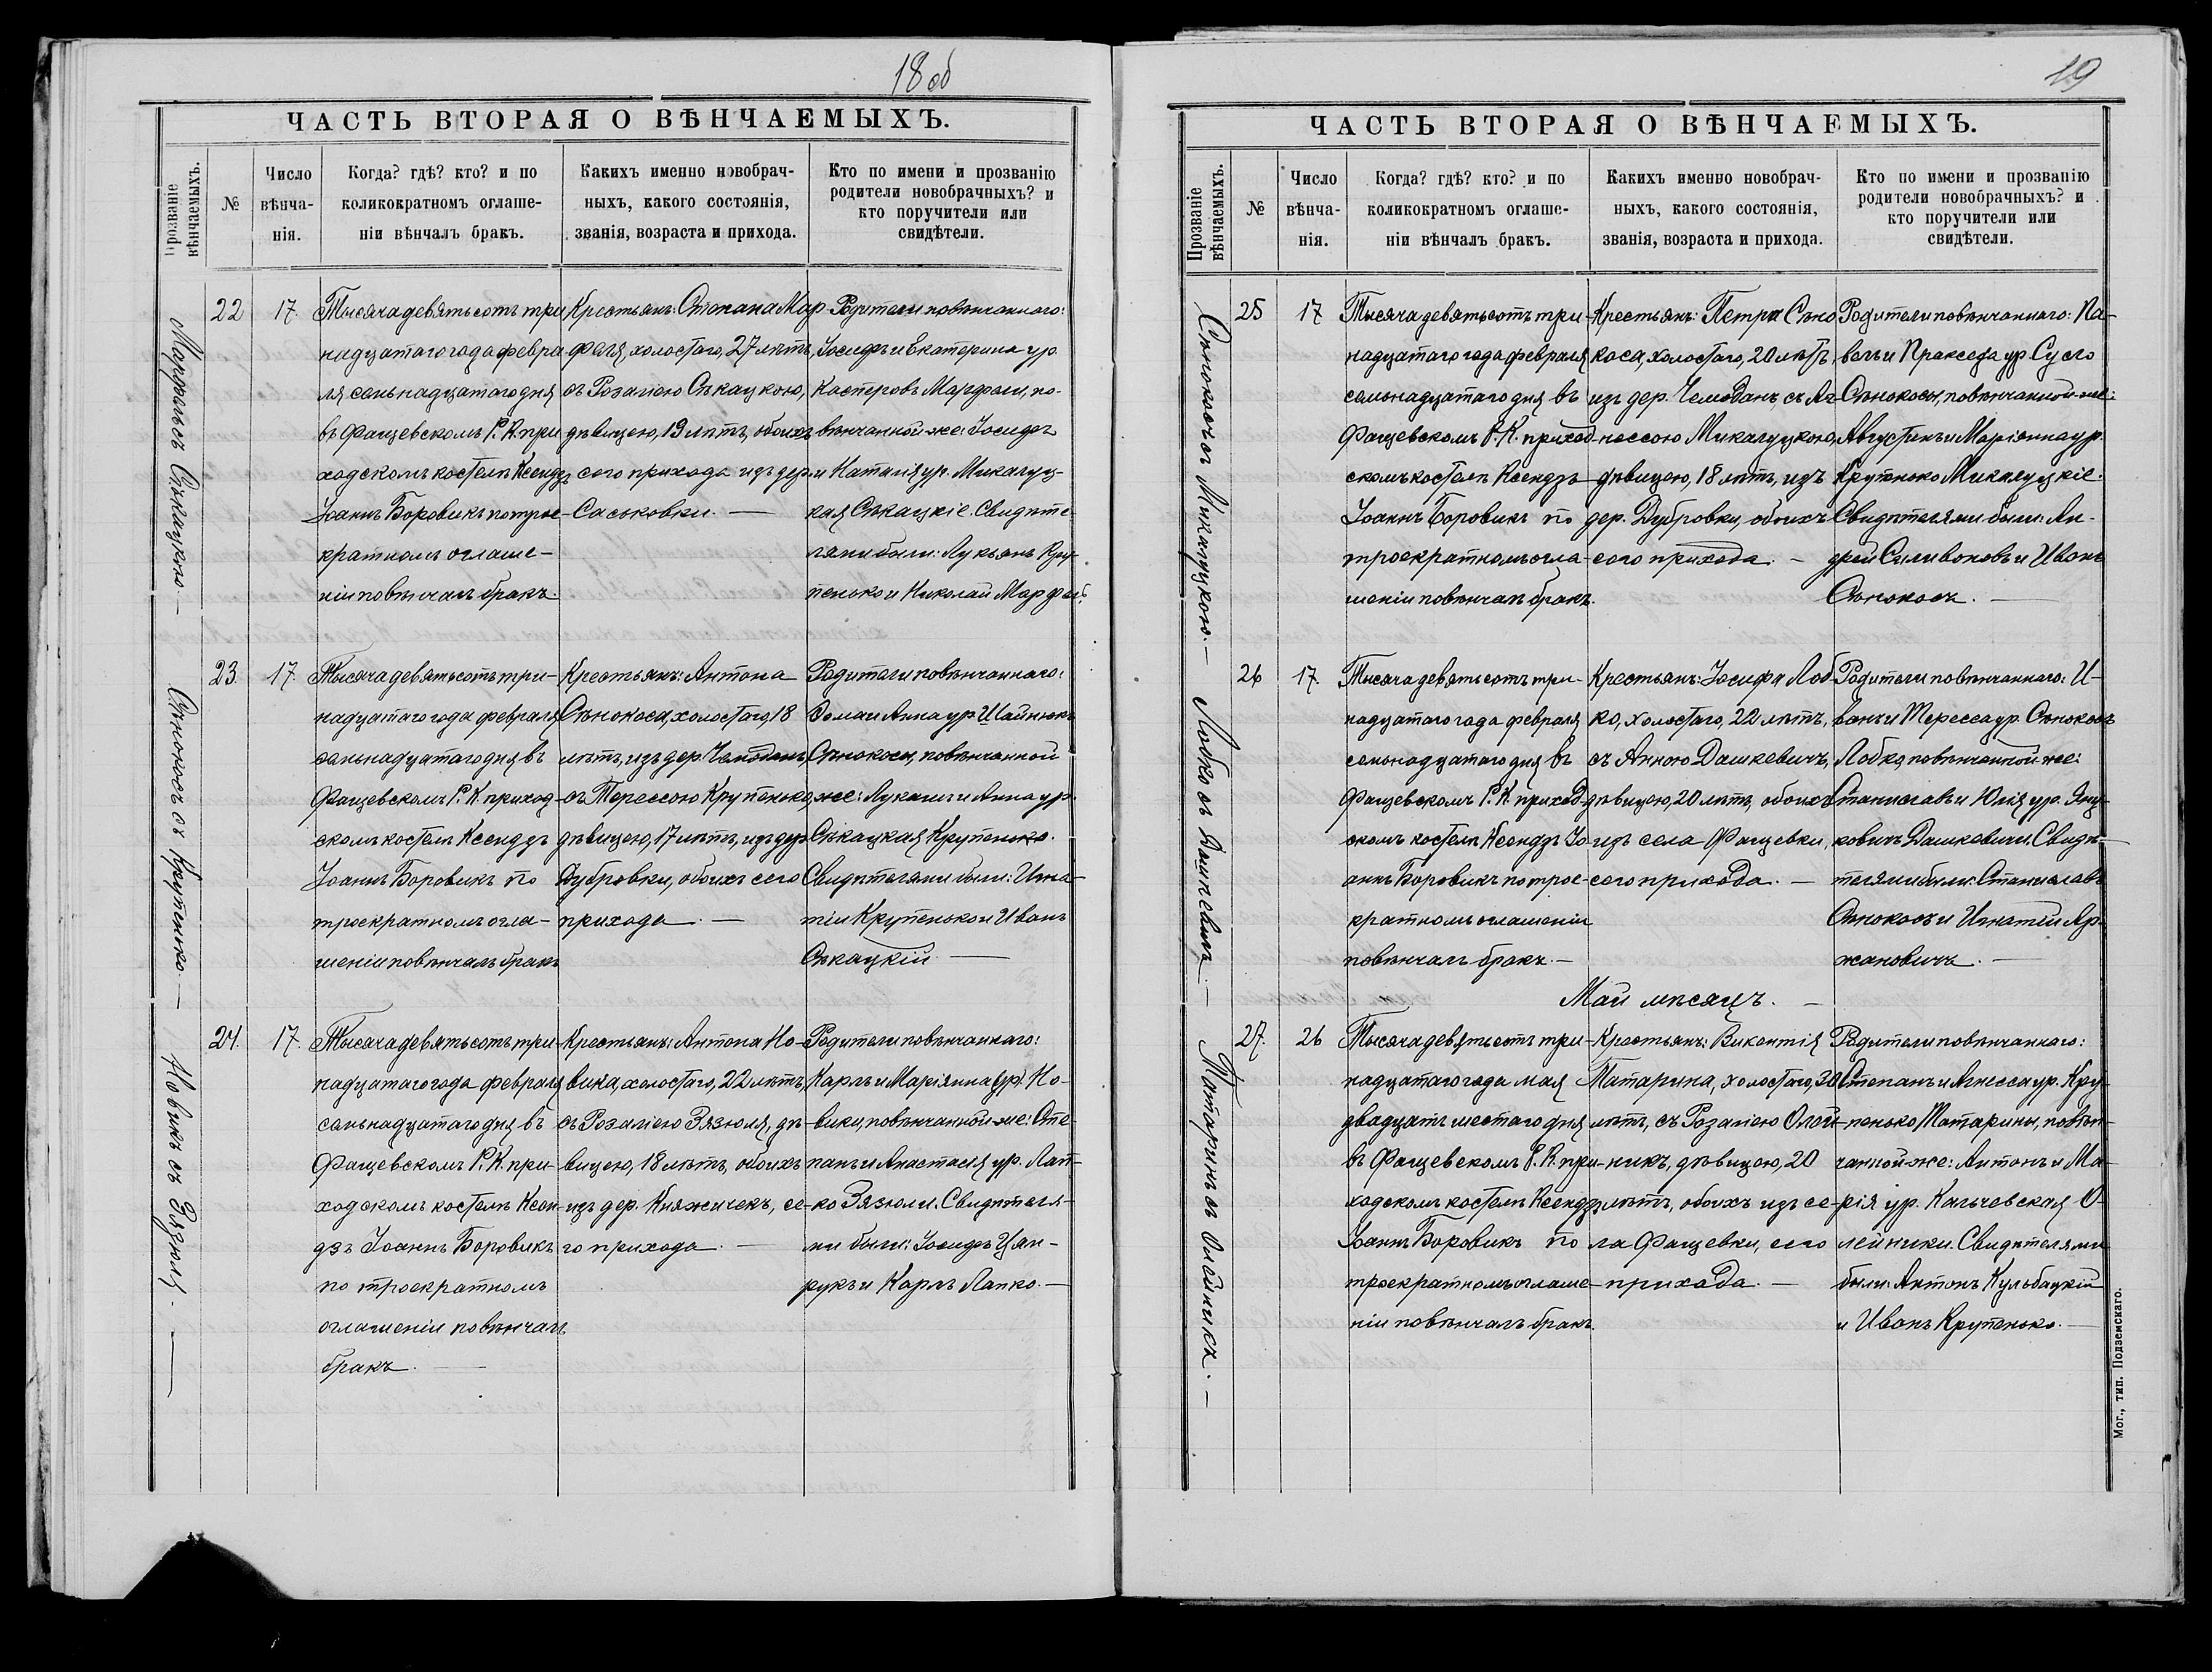 18 об
ЧАСТЬ ВТОРАЯ О ВѢНЧАЕМЫХЪ.
Прозваніе
вѣнчаемыхъ.
№
Число
вѣнча-
нія.
Когда? гдѣ? кто? и по
коликократномъ оглаше-
ніи вѣнчалъ бракъ.
Какихъ именно новобрач-
ныхъ, какого состоянія,
званія, возраста и прихода.
Кто по имени и прозванію
родители новобрачныхъ? и
кто поручители или
свидѣтели.
Марфель съ Сѣкацкою. —
22
17.
Тысяча девятьсотъ три
надцатаго года февра
ля семьнадцатаго дня
въ Фащевскомъ Р. К. при
ходскомъ костелѣ Ксендз
Іоаннъ Боровикъ по трое-
кратномъ оглаше-
ніи повѣнчалъ бракъ.
Крестьянъ: Степана Мар-
феля, холостаго, 27 лѣтъ,
съ Розаліею Сѣкацкою,
дѣвицею, 19 лѣтъ, обоихъ
сего прихода изъ дер.
Саськовки. —
Родители повѣнчаннаго:
Іосифъ и Екатерина ур.
Костровъ Марфели, по-
вѣнчанной-же: Іосифъ
и Наталія ур. Микалуц-
кая Сѣкацкіе. Свидѣте
лями были: Лукьянъ Кру-
пенько и Николай Марфель.
Сѣнокосъ съ Крупенько. —
23.
17.
Тысяча девятьсотъ три-
надцатаго года февраля
семьнадцатаго дня въ
Фащевскомъ Р. К. приход-
скомъ костелѣ Ксендзъ
Іоаннъ Боровикъ по
троекратномъ огла-
шеніи повѣнчалъ бракъ
Крестьянъ: Антона
Сѣнокоса, холостаго, 18
лѣтъ, изъ дер. Чемоданъ,
съ Терессою Крупенько,
дѣвицею, 17 лѣтъ, изъ дер
Дубровки, обоихъ сего
прихода. —
Родители повѣнчаннаго:
Ѳома и Анна ур. Шайнюкъ
Сѣнокосы, повѣнчанной
же: Лукашъ и Анна ур.
Сѣкацкая Крупенько.
Свидѣтелями были: Игна-
тій Крупенько и Иванъ
Сѣкацкій. —
Новикъ съ Зязюля. —
24.
17.
Тысяча девятьсотъ три-
надцатаго года февраля
семьнадцатаго дня въ
Фащевскомъ Р. К. при-
ходскомъ костелѣ Ксен-
дзъ Іоаннъ Боровикъ
по троекратномъ
оглашеніи повѣнчалъ
бракъ. —
Крестьянъ: Антона Но-
вика, холостаго, 22 лѣтъ,
съ Розаліею Зязюля, дѣ-
вицею, 18 лѣтъ, обоихъ
изъ дер. Княжичекъ, се-
го прихода. —
Родители повѣнчаннаго:
Карлъ и Маріянна ур. Но-
вики, повѣнчанной-же: Сте-
панъ и Анастасія ур. Лап-
ко Зязюли. Свидѣтеля-
ми были: Іосифъ Цян-
рукъ и Карлъ Лапко. —
19
ЧАСТЬ ВТОРАЯ О ВѢНЧАЕМЫХЪ.
Прозваніе
вѣнчаемыхъ.
№
Число
вѣнча-
нія.
Когда? гдѣ? кто? и по
коликократномъ оглаше-
ніи вѣнчалъ бракъ.
Какихъ именно новобрач-
ныхъ, какого состоянія,
званія, возраста и прихода.
Кто по имени и прозванію
родители новобрачныхъ? и
кто поручители или
свидѣтели.
Сѣнокосъ съ Микалуцкою. —
25
17
Тысяча девятьсотъ три-
надцатаго года февраля
семьнадцатаго дня въ
Фащевскомъ Р. К. приход-
скомъ костелѣ Ксендзъ
Іоаннъ Боровикъ по
троекратномъ огла-
шеніи повѣнчалъ бракъ.
Крестьянъ: Петра Сѣно
коса, холостаго, 20 лѣтъ,
изъ дер. Чемоданъ съ Аг-
нессою Микалуцкою,
дѣвицею, 18 лѣтъ, изъ
дер. Дубровки, обоихъ
сего прихода. —
Родители повѣнчаннаго: Па-
велъ и Праксeда ур. Сусло
Сѣнокосы, повѣнчанной-же:
Августинъ и Маріянна ур.
Крупенько Микалуцкіе.
Свидѣтелями были: Ан-
дрей Селивоновъ и Иванъ
Сѣнокосъ. —
Лобко съ Дашкевичъ. —
26
17.
Тысяча девятьсотъ три-
надцатаго года февраля
семьнадцатаго дня въ
Фащевскомъ Р. К. приход
скомъ костелѣ Ксендзъ Іо-
аннъ Боровикъ по трое-
кратномъ оглашеніи
повѣнчалъ бракъ. —
Крестьянъ: Іосифа Лоб-
ко, холостаго, 22 лѣтъ,
съ Анною Дашкевичъ,
дѣвицею, 20 лѣтъ, обоихъ
изъ села Фащевки,
сего прихода. —
Родители повѣнчаннаго: И-
ванъ и Тересса ур. Сѣнокосъ
Лобко, повѣнчанной-же:
Станиславъ и Юлія ур. Яцу-
ковичъ Дашкевичи. Свидѣ-
телями были: Станиславъ
Сѣнокосъ и Игнатій Ар-
жановичъ. —
Май мѣсяцъ. —
Татаринъ съ Олейникъ. —
27.
26
Тысяча девятьсотъ три-
надцатаго года мая
двадцать шестаго дня
въ Фащевскомъ Р. К. при-
ходскомъ костелѣ Ксендзъ
Іоаннъ Боровикъ по
троекратномъ оглаше-
ніи повѣнчалъ бракъ.
Крестьянъ: Викентія
Татарина, холостаго, 30
лѣтъ, съ Розаліею Олей-
никъ, дѣвицею, 20
лѣтъ, обоихъ изъ се-
ла Фащевки, сего
прихода. —
Родители повѣнчаннаго:
Степанъ и Агнесса ур. Кру-
пенько Татарины, повѣн-
чанной-же: Антонъ и Ма-
рія ур. Кальчевская О-
лейники. Свидѣтелями
были: Антонъ Кульбацкій
и Иванъ Крупенько. —
Мог., тип. Подземскаго.